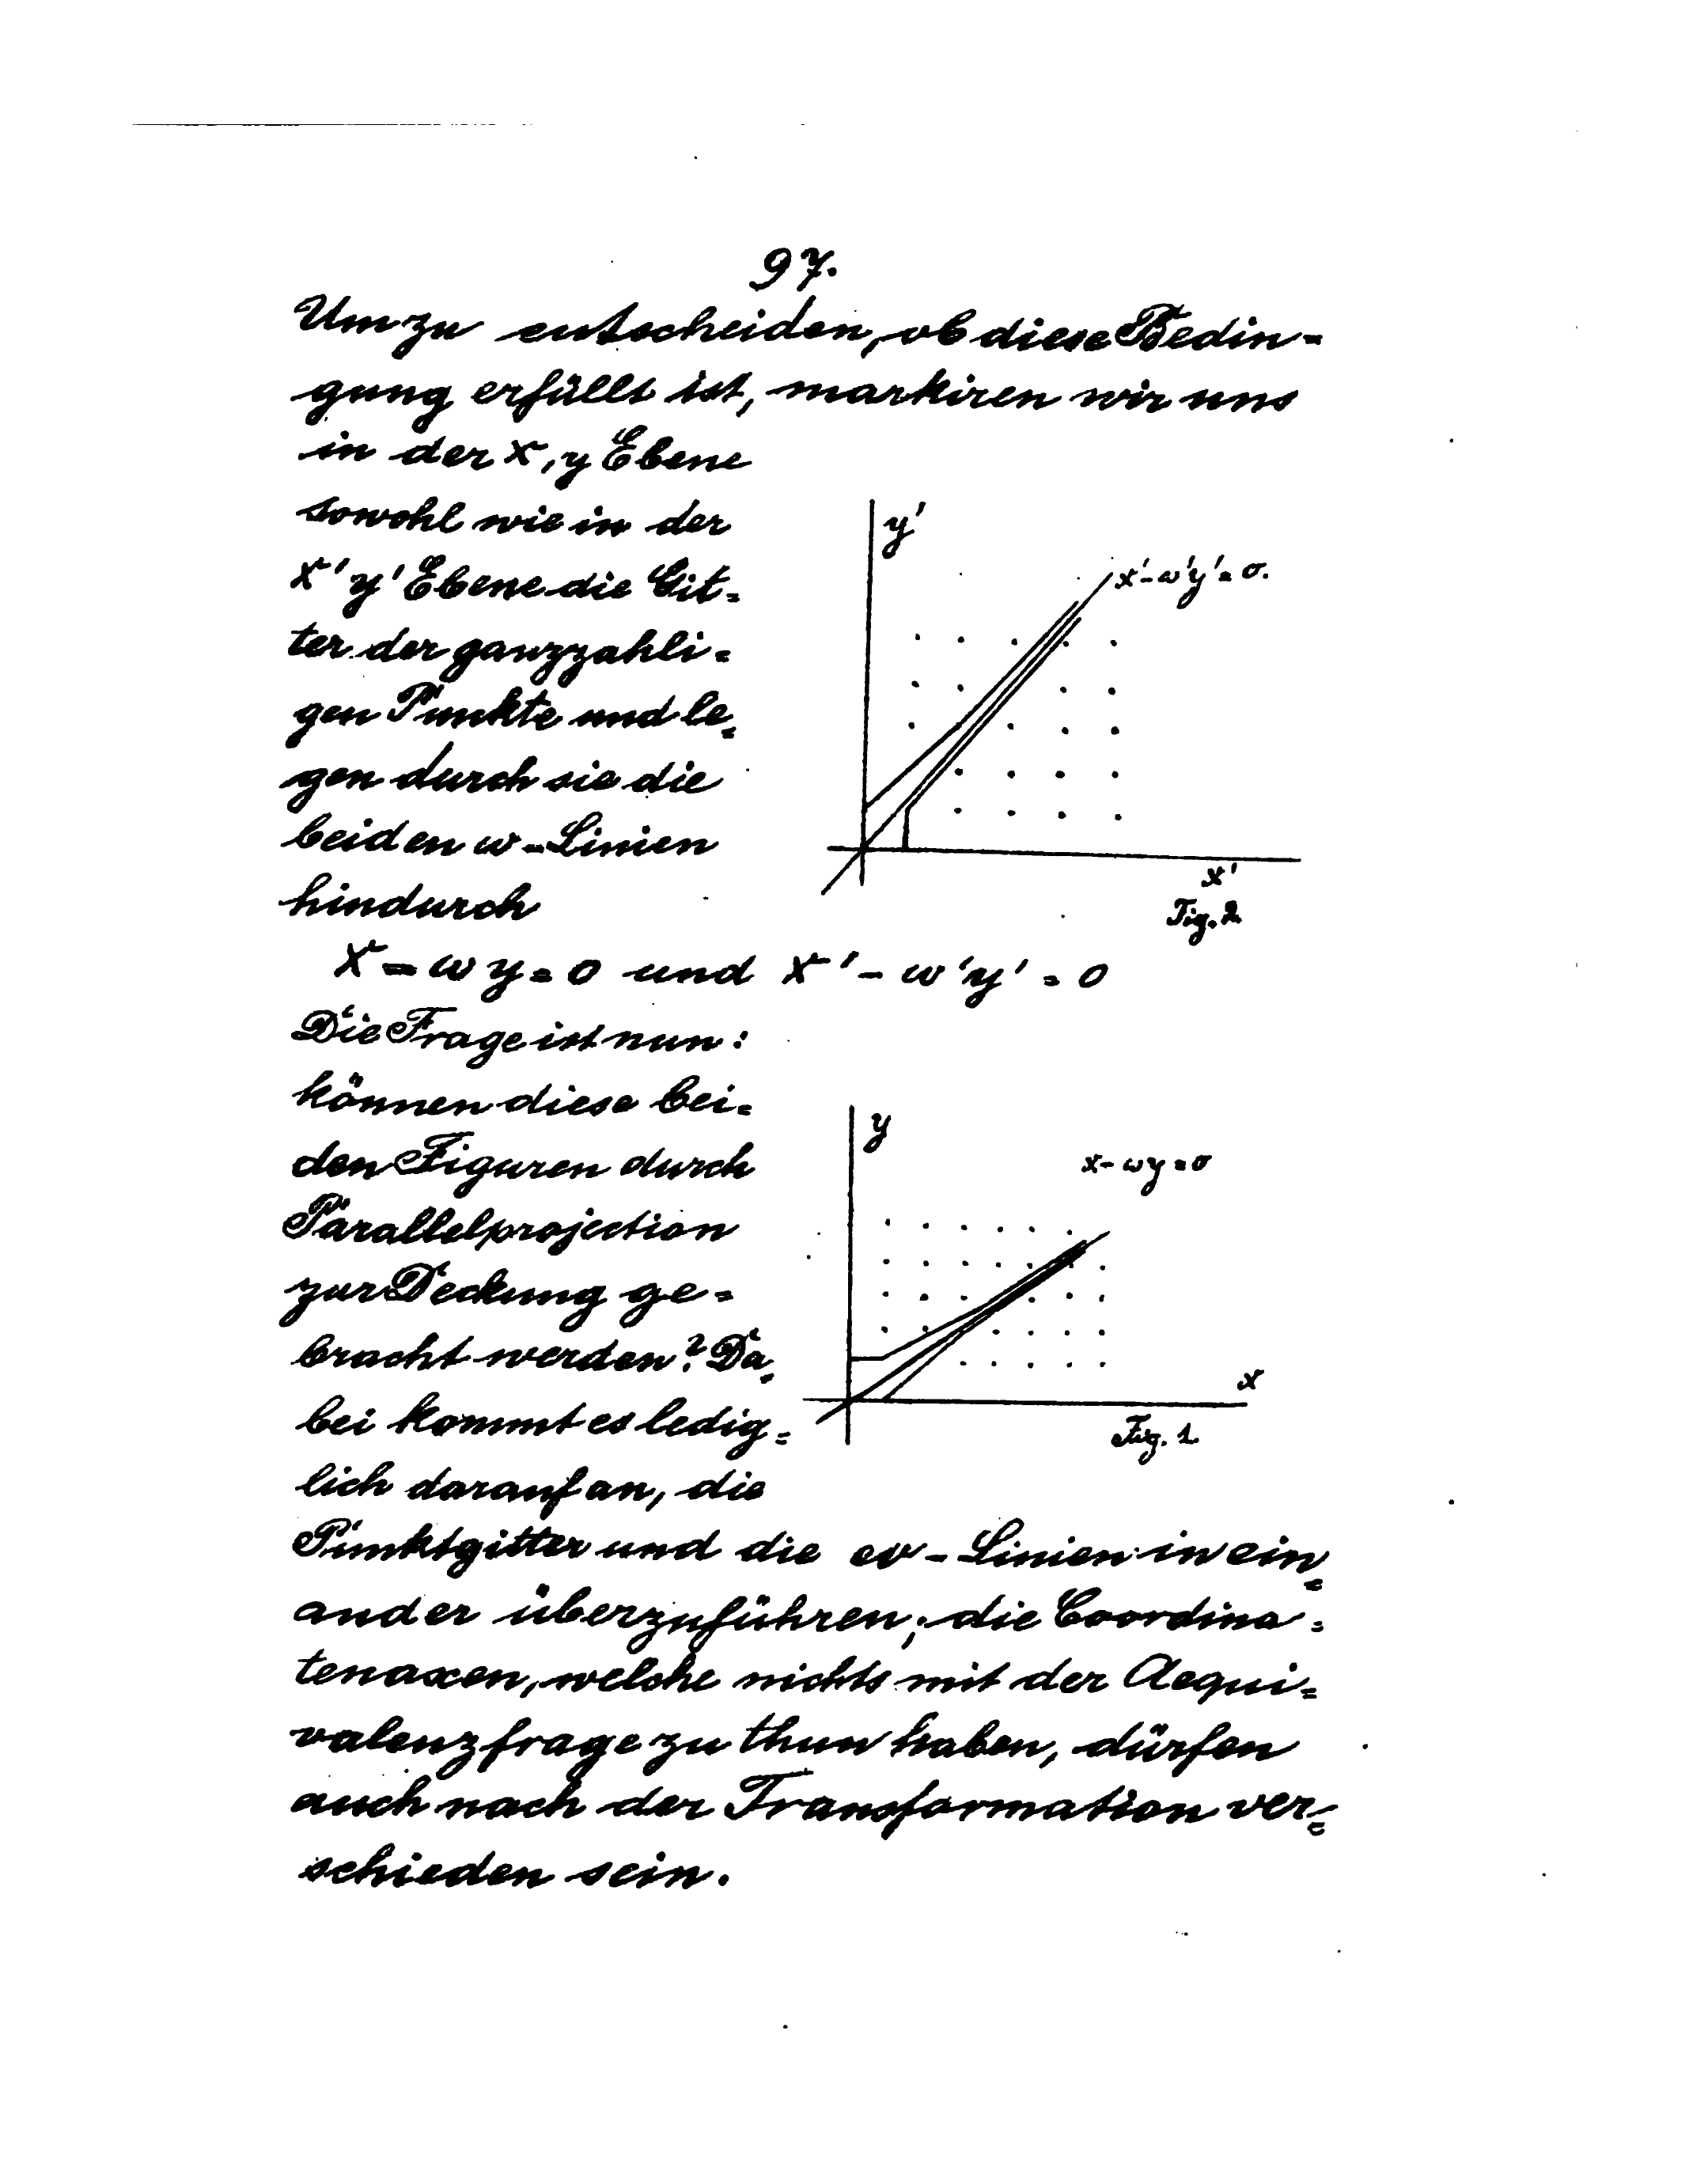 97.
Um zu entscheiden, ob diese Bedin=
gung erfüllt ist, markiren wir uns
in der x, y Ebene
sowohl wie in der
x' y' Ebene die Git=
ter der ganzzahli=
gen Punkte und le=
gen durch sie die
beiden w-Linien
hindurch
y'
x'-w'y'=0.
x'
Fig. 2
x-wy=0 und x'-w'y'=0
Die Frage ist nun:
können diese bei=
den Figuren durch
Parallelprojection
zur Deckung ge=
bracht werden? Da=
bei kommt es ledig=
lich darauf an, die
y
x-wy=0
x
Fig. 1.
Punktgitter und die w-Linien in ein=
ander überzuführen; die Coordina=
tenaxen, welche nichts mit der Aequi=
valenzfrage zu thun haben, dürfen
auch nach der Transformation ver=
schieden sein.